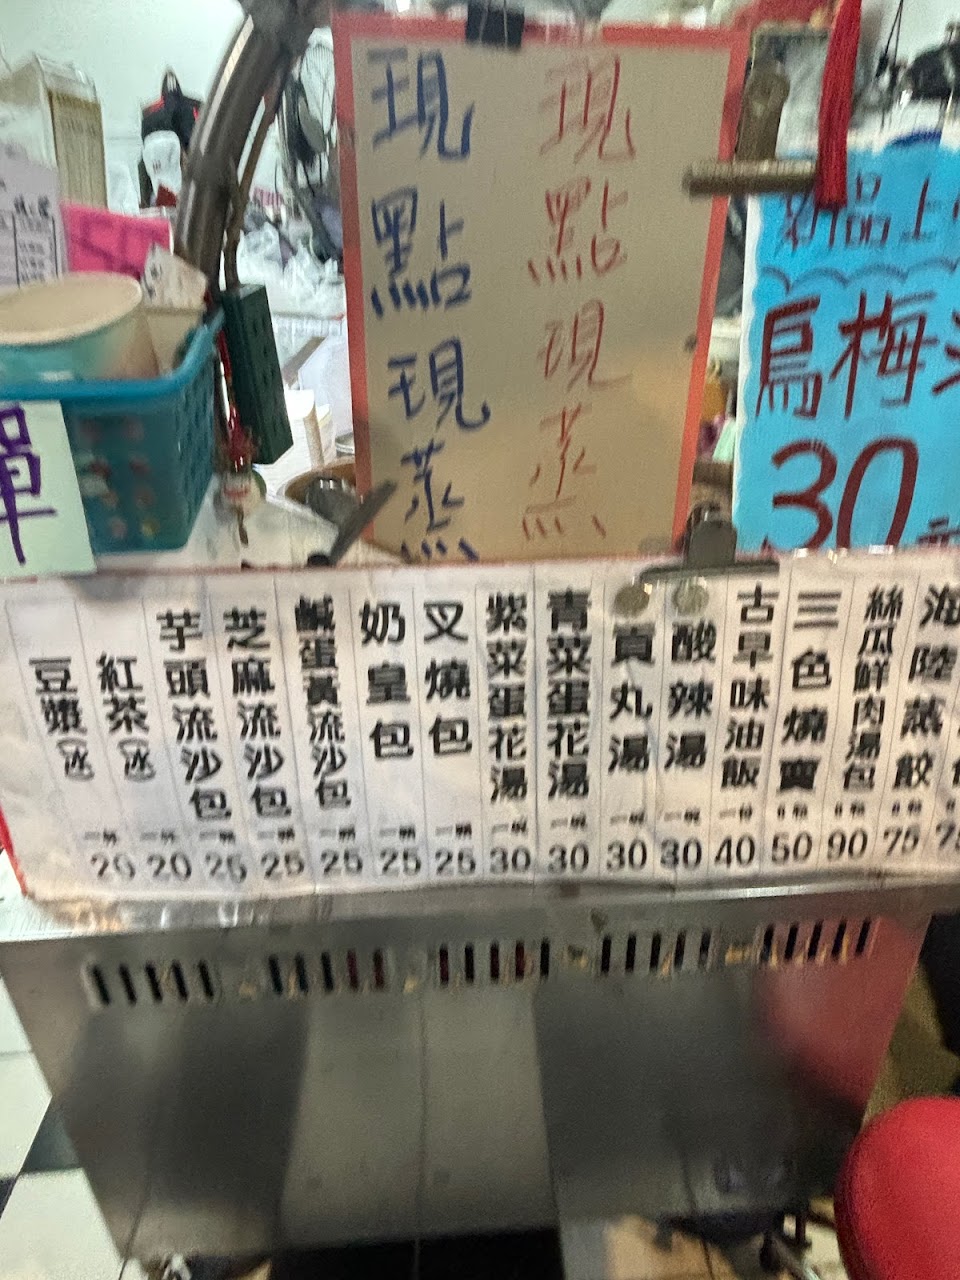 現點現蒸
現點現蒸
新品上
烏梅
30
單
海陸蒸餃
75
絲瓜鮮肉湯包
90
三色燒賣
50
古早味油飯 一份
40
酸辣湯 一碗
30
貢丸湯 一碗
30
青菜蛋花湯 一碗
30
紫菜蛋花湯 一碗
30
叉燒包 一顆
25
奶皇包 一顆
25
鹹蛋黃流沙包 一顆
25
芝麻流沙包 一顆
25
芋頭流沙包 一顆
25
紅茶(冰) 一杯
20
豆漿(冰) 一杯
20